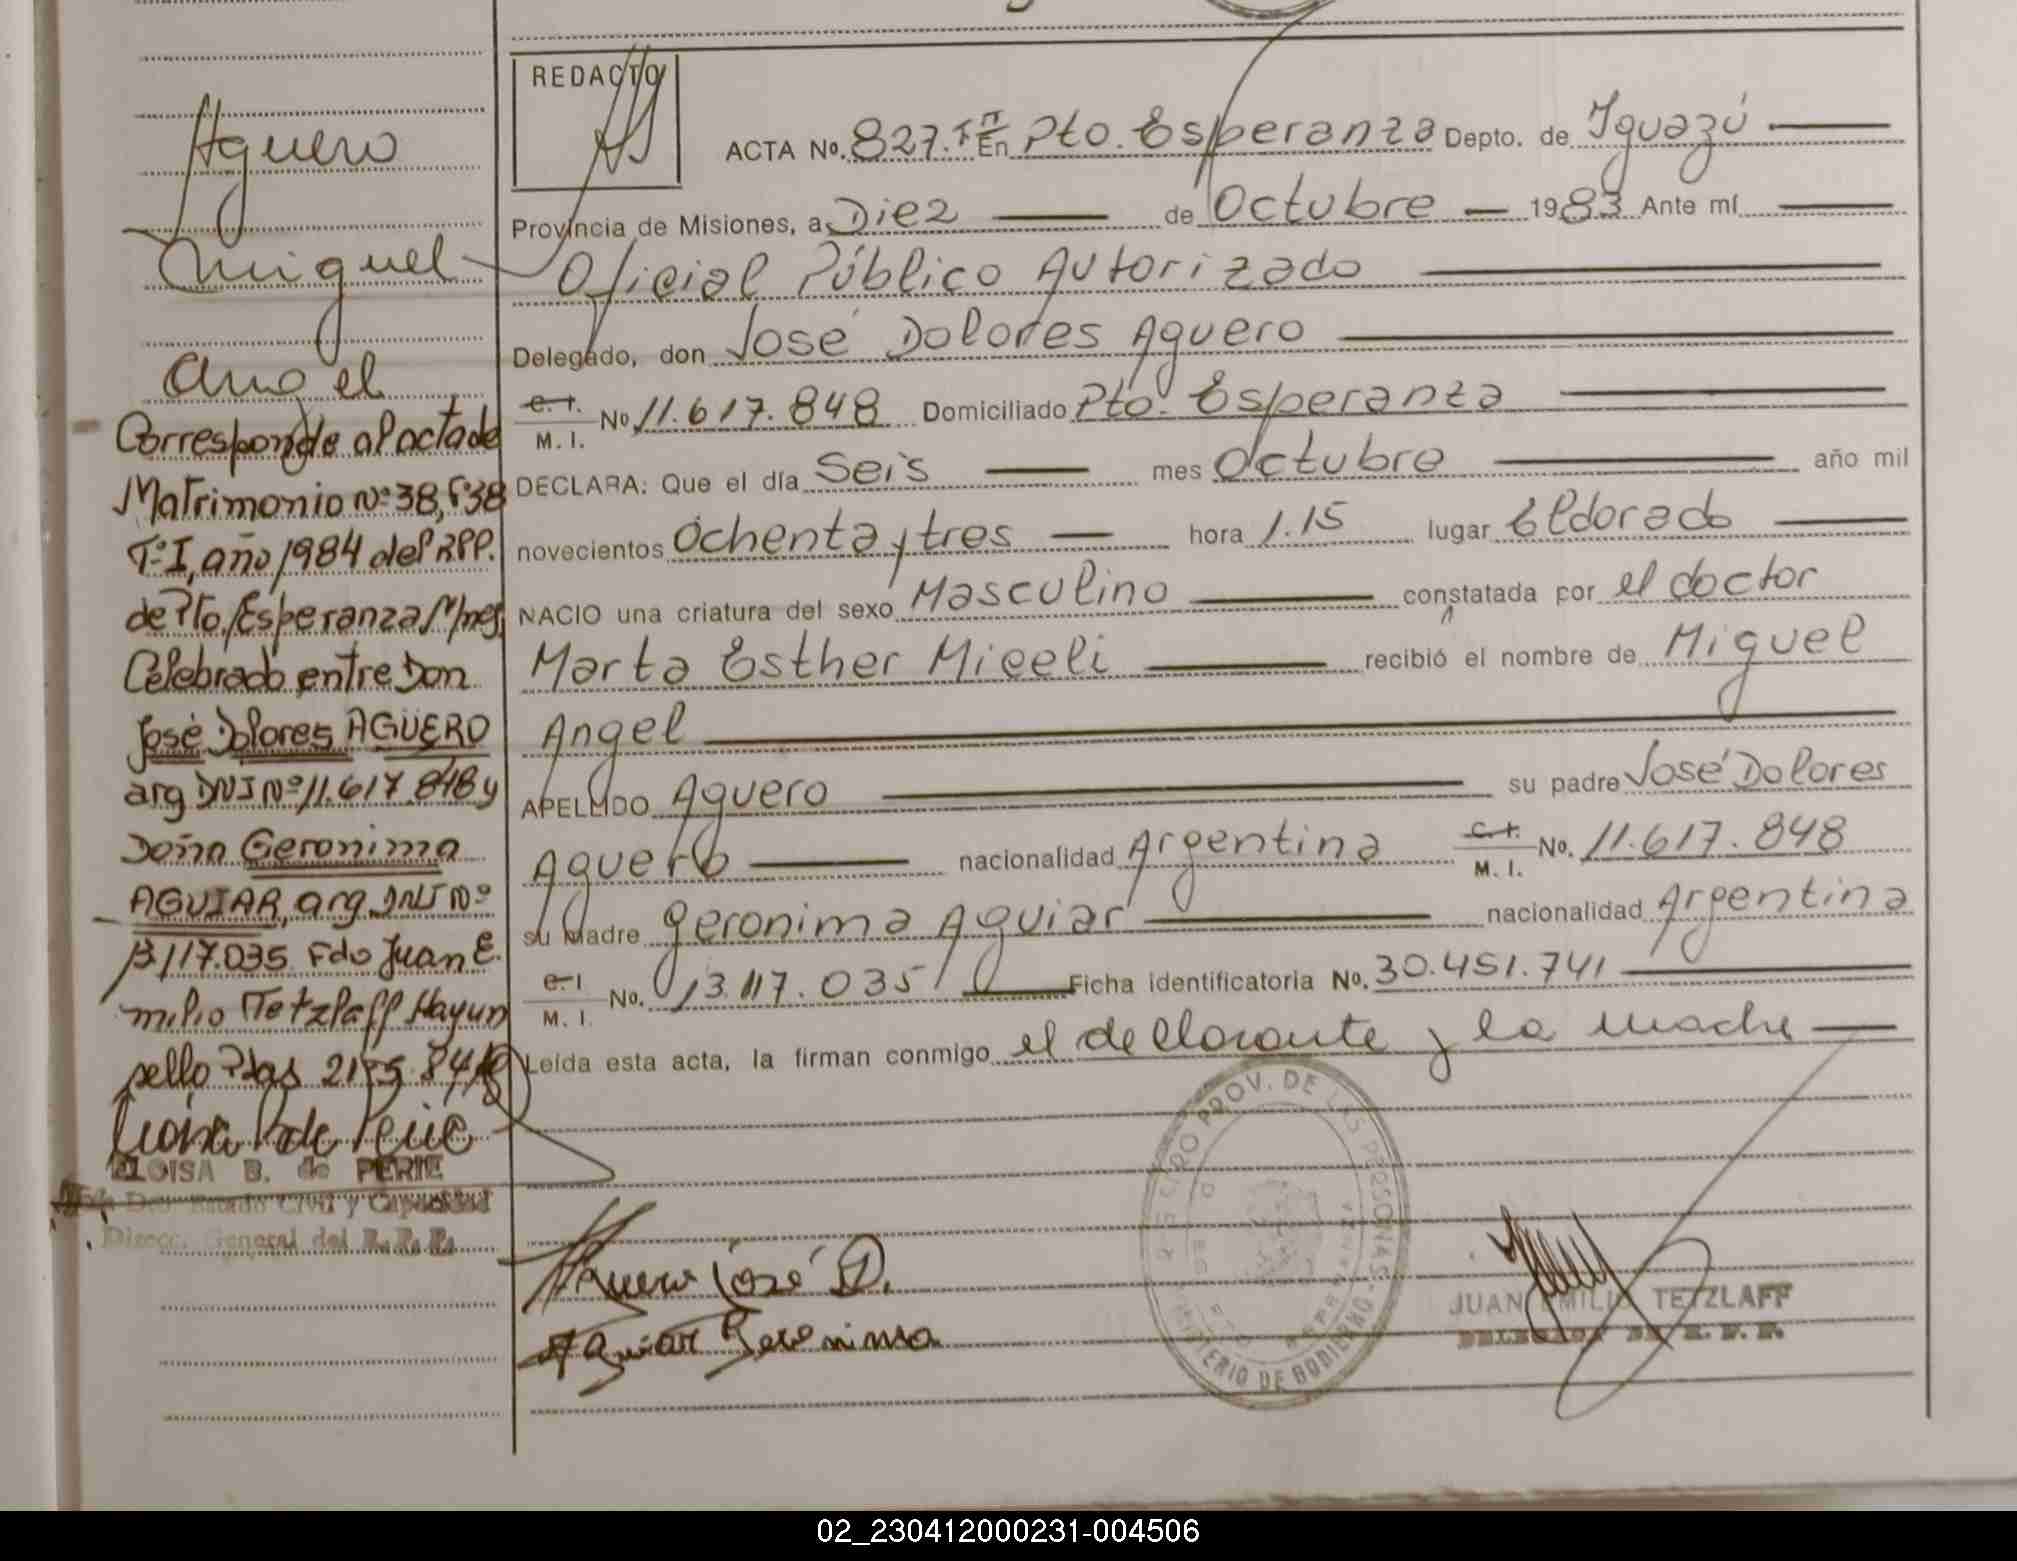 Aguero
Miguel
Angel
Corresponde al acta de
Matrimonio Nº 38, Fº 38
Tº I, año 1984 del RPP.
de Pto. Esperanza Mnes,
Celebrado entre Don
José Dolores AGÜERO
arg DNI Nº 11.617.848 y
Doña Geronima
AGUIAR, arg. DNI Nº
13117.035 Fdo Juan E.
milio Tetzlaff Hay un
sello Pdas 21-5-84
ELOISA B. de PERIE
Dto Estado Civil y Capacidad
Direcc. General del R. P. P.
REDACTO
ACTA No. 827. Tº II En Pto. Esperanza Depto. de Iguazú
Provincia de Misiones, a Diez de Octubre 1983 Ante mí
Oficial Público Autorizado
Delegado, don José Dolores Aguero
C. I. M. I. No 11.617.848 Domiciliado Pto. Esperanza
DECLARA: Que el día Seis mes Octubre año mil
novecientos Ochenta y tres hora 1.15 lugar Eldorado
NACIO una criatura del sexo Masculino constatada por el doctor
Marta Esther Miceli recibió el nombre de Miguel
Angel
APELLIDO Aguero su padre José Dolores
Aguero nacionalidad Argentina C. I. M. I. No. 11.617.848
su Madre Geronima Aguiar nacionalidad Argentina
C. I M. I. No. 13.117.035 Ficha identificatoria No. 30.451.741
Leída esta acta, la firman conmigo el declarante y la madre
Aguero José D.
Aguiar Geronima
PROV. DE LAS PERSONAS - MINISTERIO DE GOBIERNO
JUAN EMILIO TETZLAFF
DELEGADO DE R. P. P.
02_230412000231-004506